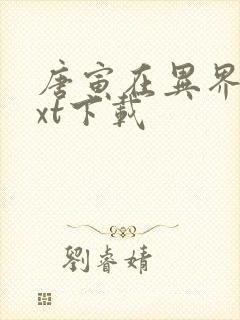 唐寅在異界
xt下載
劉睿婧